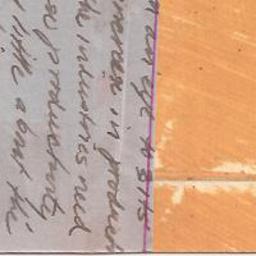 an eye to its
increase in product
industries need
productivity
little about the